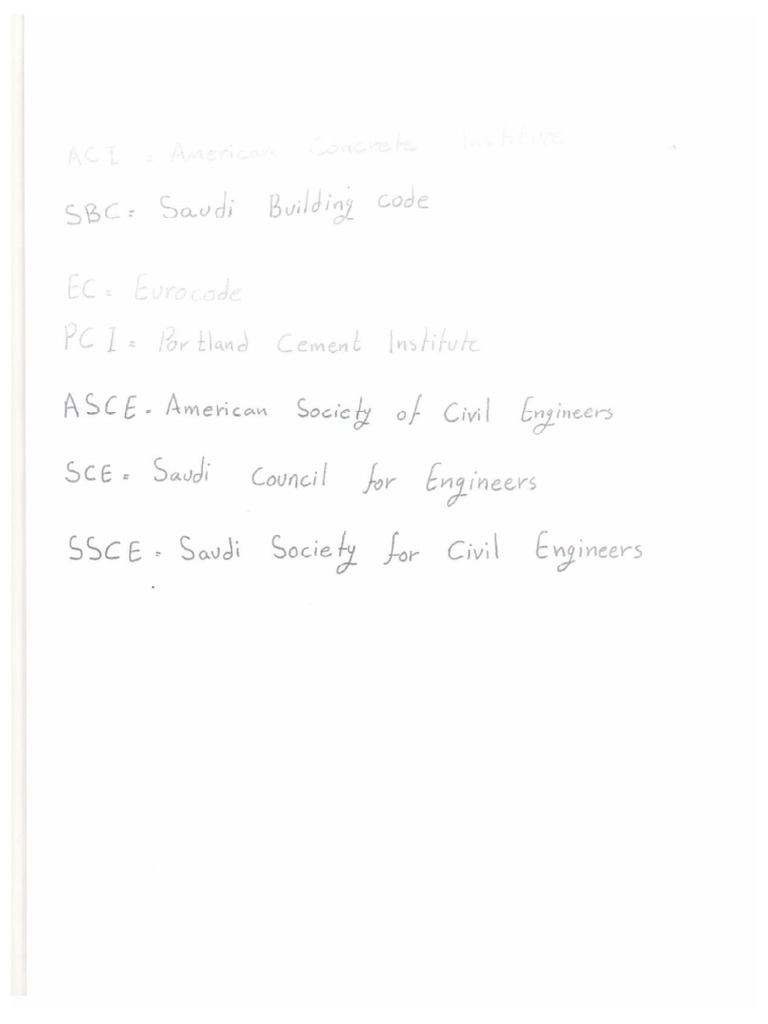 ACI = American Concrete Institute
SBC = Saudi Building code
EC = Eurocode
PCI = Portland Cement Institute
ASCE = American Society of Civil Engineers
SCE = Saudi Council for Engineers
SSCE = Saudi Society for Civil Engineers